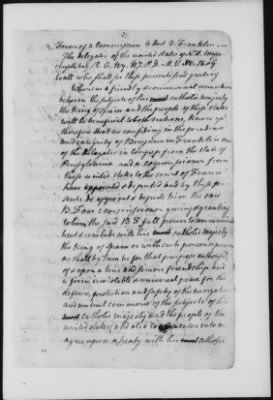 Form of a Commission to Doct. B. Franklin
The delegates of the united states of N. H.
N. C. &
to all who shall see these presents send greeting
Whereas a friendly & commercial connection
between the subjects of his most catholic majesty
the King of Spain and the people of these states
will be beneficial to both nations, know ye
therefore that we confiding in the prudence
and integrity of Benjamin Franklin one
of the delegates in Congress from the state of
Pensylvania and a commissioner from
these united states to the court of France
have appointed & deputed and by these pre-
sents do appoint & depute him the said
B. F. our commissioner giving & granting
to him the said B. F. full power to communicate
& conclude with his most catholic majesty
the King of Spain or with such person or persons
as shall by him be for that purpose authorised
of & upon a true and sincere friendship and
a firm inviolable & universal peace for the
defence, protection and safety of the navigation
and mutual commerce of the subjects of his
most catholic majesty and the people of the
united states and also to enter into &
agree upon a treaty with his most catholic